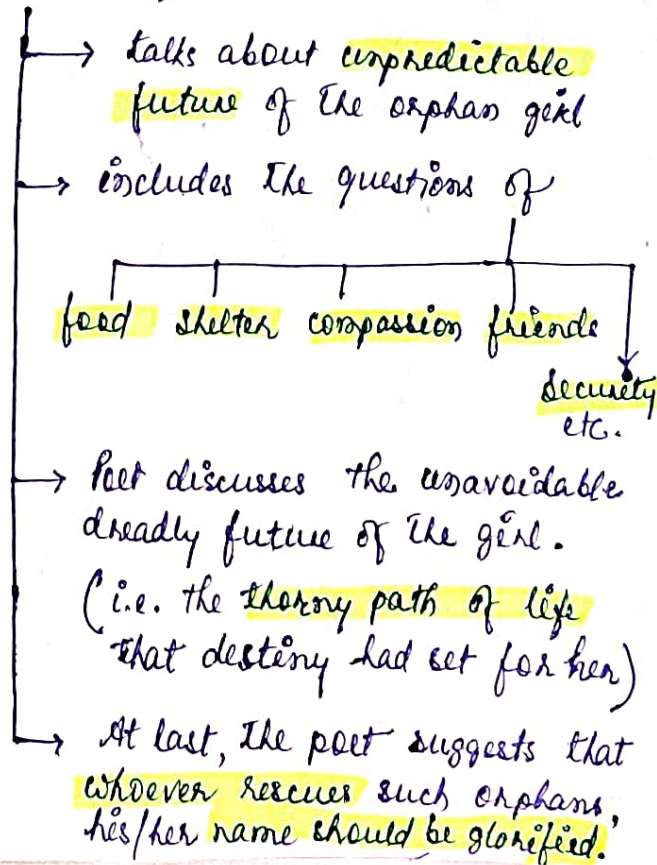 → talks about unpredictable
future of the orphan girl
→ includes the questions of
food shelter compassion friends
security
etc.
→ Poet discusses the unavoidable
dreadly future of the girl.
(i.e. the thorny path of life
that destiny had set for her)
→ At last, the poet suggests that
whoever rescues such orphans,
his/her name should be glorified.